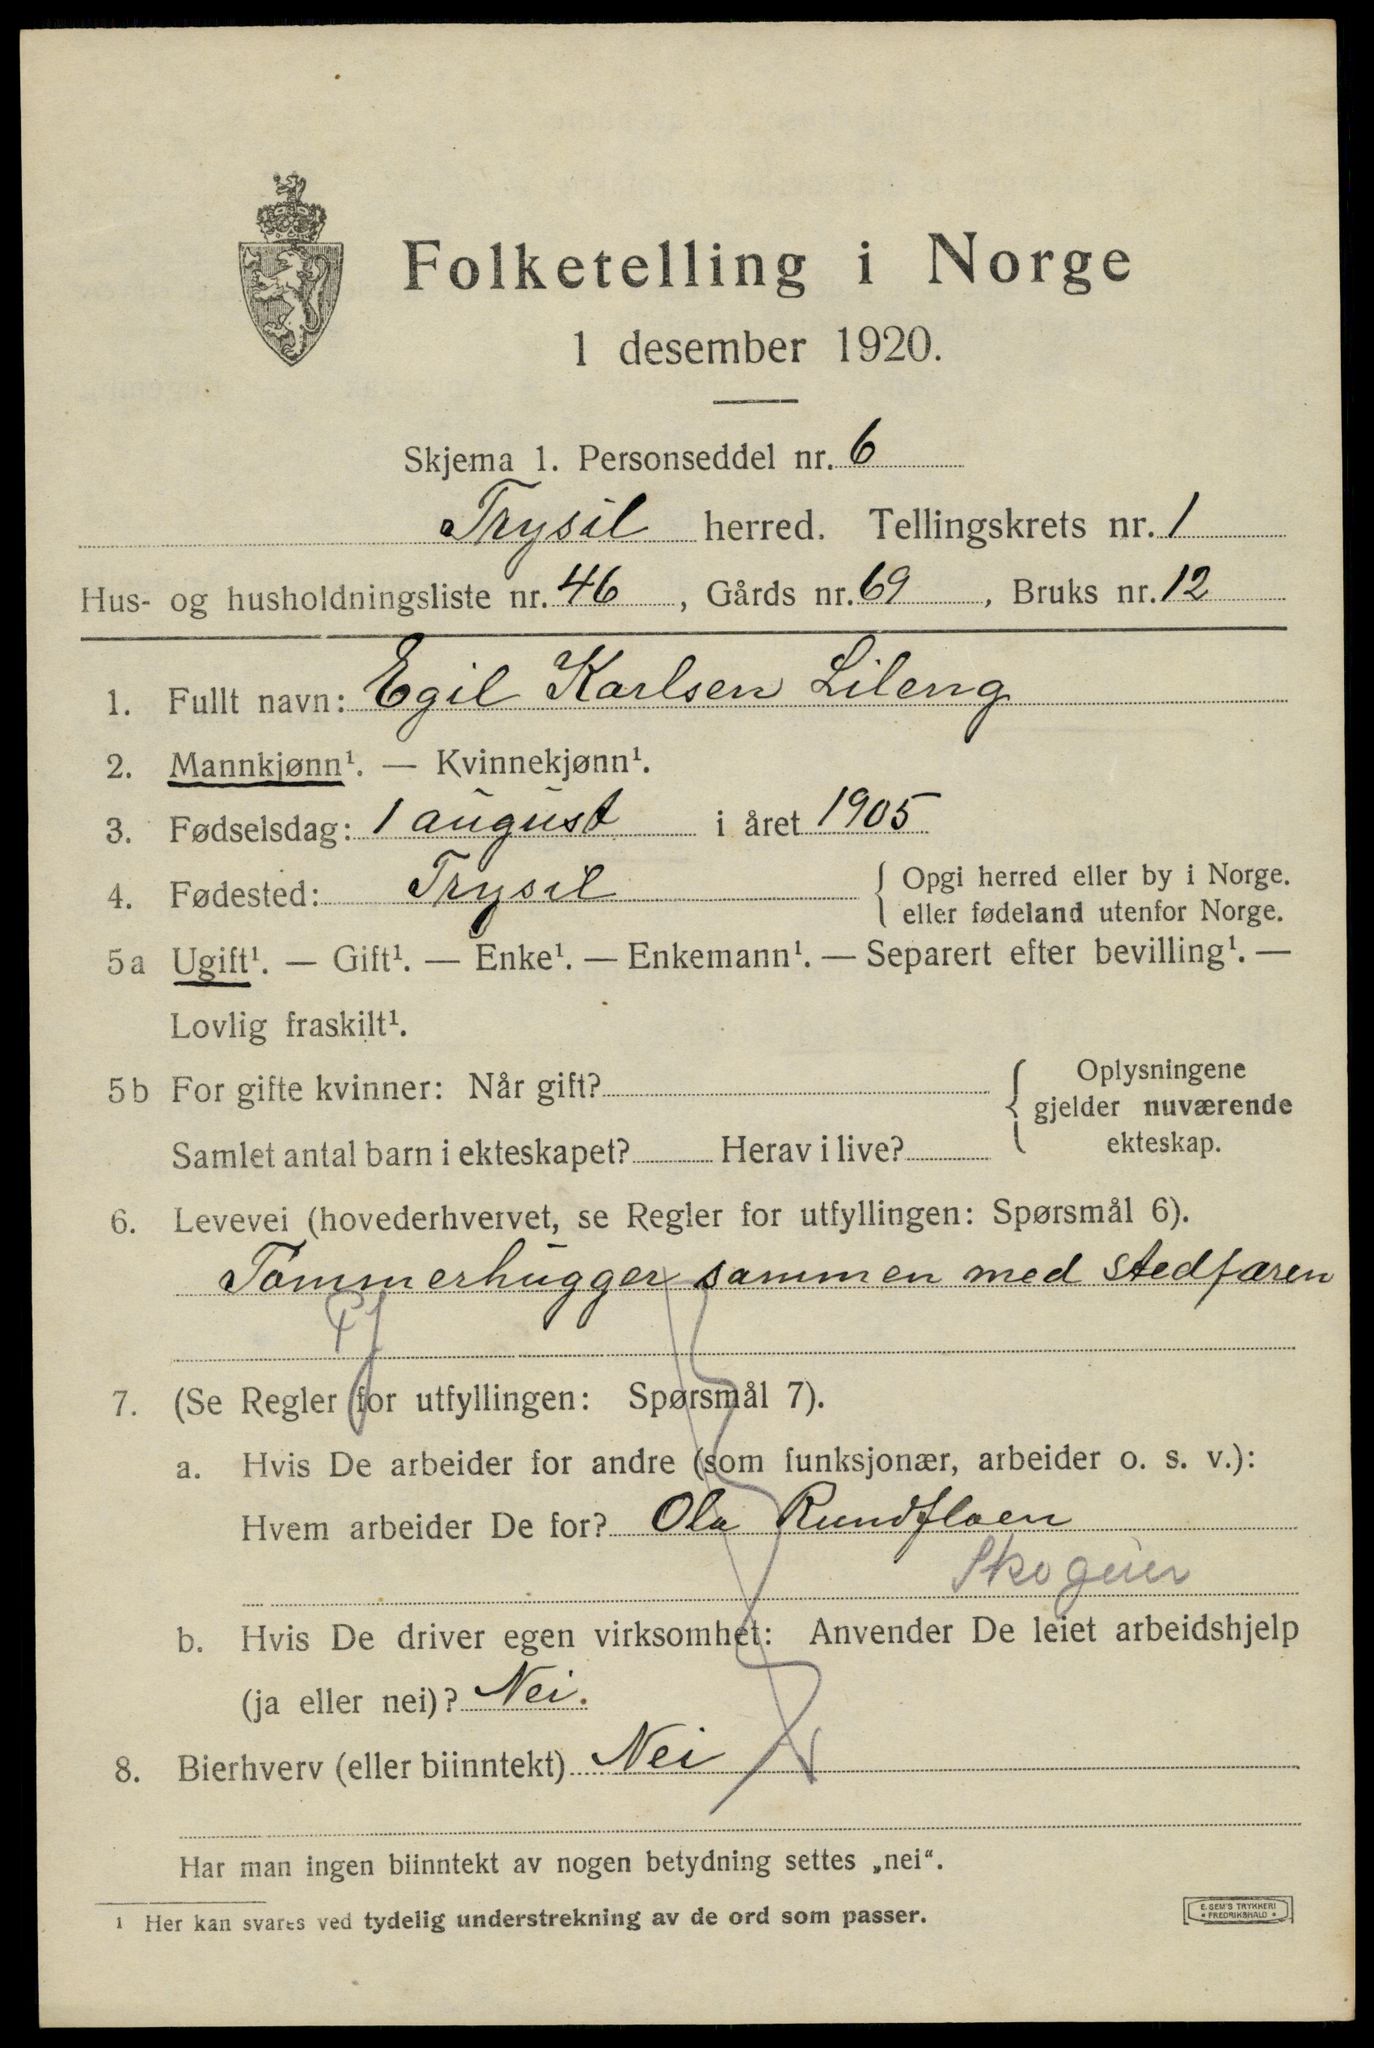 Folketelling i Norge
1 desember 1920.
Skjema 1. Personseddel nr. 6
Trysil herred. Tellingskrets nr. 1
Hus- og husholdningsliste nr. 46, Gårds nr. 69, Bruks nr. 12
1. Fullt navn: Egil Karlsen Lileng
2. Mannkjønn¹. — Kvinnekjønn¹.
3. Fødselsdag: 1 august i året 1905
4. Fødested: Trysil { Opgi herred eller by i Norge.
eller fødeland utenfor Norge.
5a Ugift¹. — Gift¹. — Enke¹. — Enkemann¹. — Separert efter bevilling¹. —
Lovlig fraskilt¹.
5b For gifte kvinner: Når gift? { Oplysningene
gjelder nuværende
ekteskap.
Samlet antal barn i ekteskapet? Herav i live?
6. Levevei (hovederhvervet, se Regler for utfyllingen: Spørsmål 6).
Tømmerhugger sammen med stedfaren
7. (Se Regler for utfyllingen: Spørsmål 7).
a. Hvis De arbeider for andre (som funksjonær, arbeider o. s. v.):
Hvem arbeider De for? Ola Rundfloen
Skogeier
b. Hvis De driver egen virksomhet: Anvender De leiet arbeidshjelp
(ja eller nei)? Nei.
8. Bierhverv (eller biinntekt) Nei
Har man ingen biinntekt av nogen betydning settes „nei“.
¹ Her kan svares ved tydelig understrekning av de ord som passer.
E. SEM'S TRYKKERI
• FREDRIKSHALD •